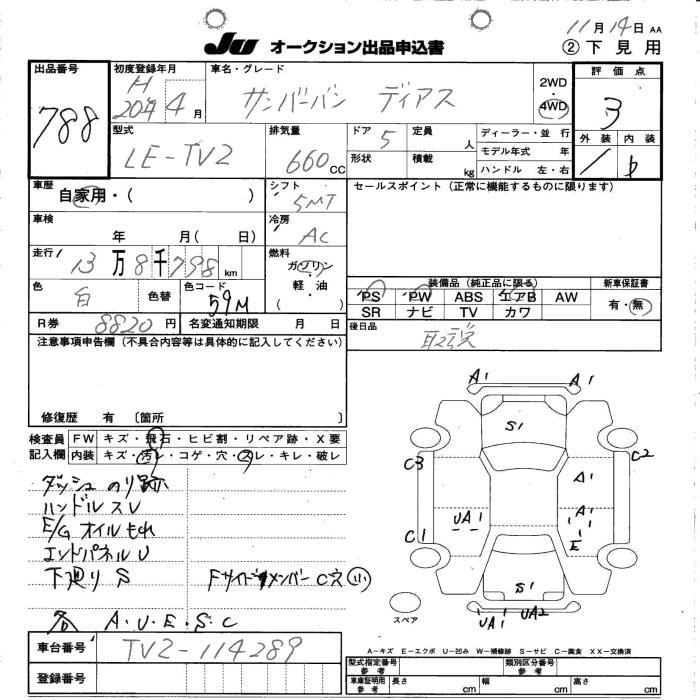 JU オークション出品申込書
11月14日 AA
② 下見用
出品番号
788
初度登録年月
H
20年4月
車名・グレード
サンバーバン ディアス
2WD
4WD
評価点
3
外装 内装
型式
LE-TV2
排気量
660cc
ドア 5
定員 人
形状
積載 kg
ディーラー・並行
モデル年式 年
ハンドル 左・右
車歴
自家用・( )
シフト
5MT
セールスポイント(正常に機能するものに限ります)
車検
年 月( 日)
冷房
AC
走行
13万8千798km
燃料
ガソリン・
軽油・
( )
色
白
色替
色コード
59M
装備品(純正品に限る)
PS PW ABS エアB AW
SR ナビ TV カワ
新車保証書
有・無
R券 8820円
名変通知期限 月 日
後日品
取説
注意事項申告欄(不具合内容等は具体的に記入してください)
修復歴 有〔箇所 〕
検査員
記入欄
FW キズ・飛石・ヒビ割・リペア跡・X要
内装 キズ・汚レ・コゲ・穴・スレ・キレ・破レ
ダッシュ のり跡
ハンドル スレ
E/G オイルもれ
エンドパネル U
下廻り S
Fサイドメンバー C穴 小
各 A・U・E・S・C
A1 A1
S1
C3 C2
A1
UA1 A1
C1 E
S1
UA1 UA2
スペア
A-キズ E-エクボ U-凹み W-補修跡 S-サビ C-腐食 XX-交換済
車台番号
TV2-114289
登録番号
型式指定番号
参考
類別区分番号
参考
車庫証明用
参考
長さ cm
幅 cm
高さ cm